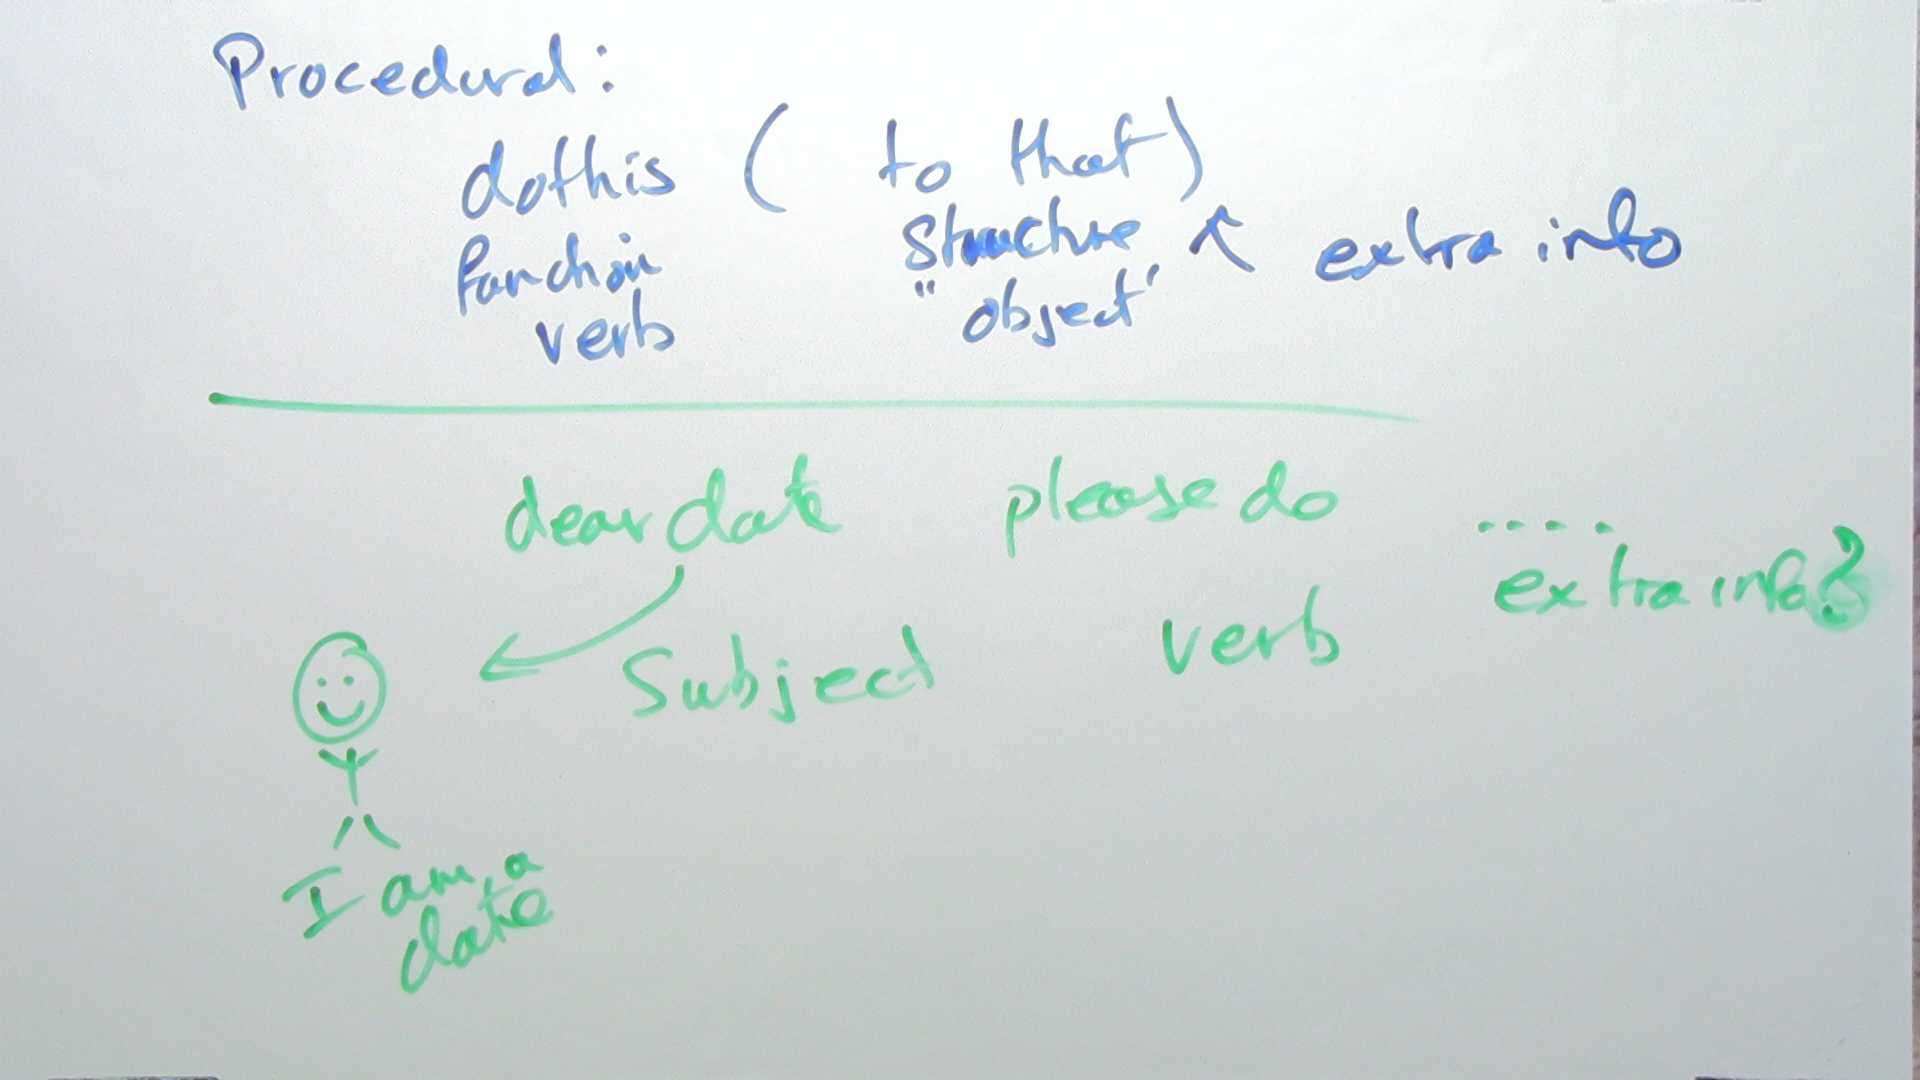 Procedural:
dothis ( to that )
function structure ^ extra info
verb "object"
dear date please do ....
extra info?
Subject verb
I am a
date